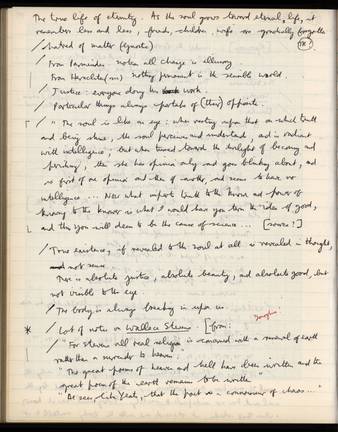 The true life of eternity. As the soul grows toward eternal life, it
remembers less and less, friends, children, wife are gradually forgotten
/ hatred of matter (ignota)
/ From Parmenides - notion all change is illusory
From Heraclitus nothing permanent in the sensible world.
/ Justice: everyone doing his work.
/ Particular things always partake of (their) opposite.
/ "The soul is like an eye: when resting upon that on which truth
and being shine, the soul perceives and understands, and is radiant
with intelligence; but when turned toward the twilight of becoming and
perishing, then she has opinion only and goes blinking about, and
is first of one opinion and then of another, and seems to have no
intelligence ... Now what imparts truth to the known and power of
knowing to the knower is what I would have you term the idea of good,
and this you will deem to be the cause of science ... [source?]
/ True existence, if revealed to the soul at all is revealed in thought,
not sense.
There is absolute justice, absolute beauty, and absolute good, but
not visible to the eye.
/ The body is always breaking in upon us.
* / Lot of notes on Wallace Stevens. [from:
/ "For Stevens all real religion is concerned with a renewal of earth
rather than a surrender to heaven.
"The great poems of heaven and hell have been written and the
great poem of the earth remains to be written"
that the poet is a connoisseur of chaos ..."